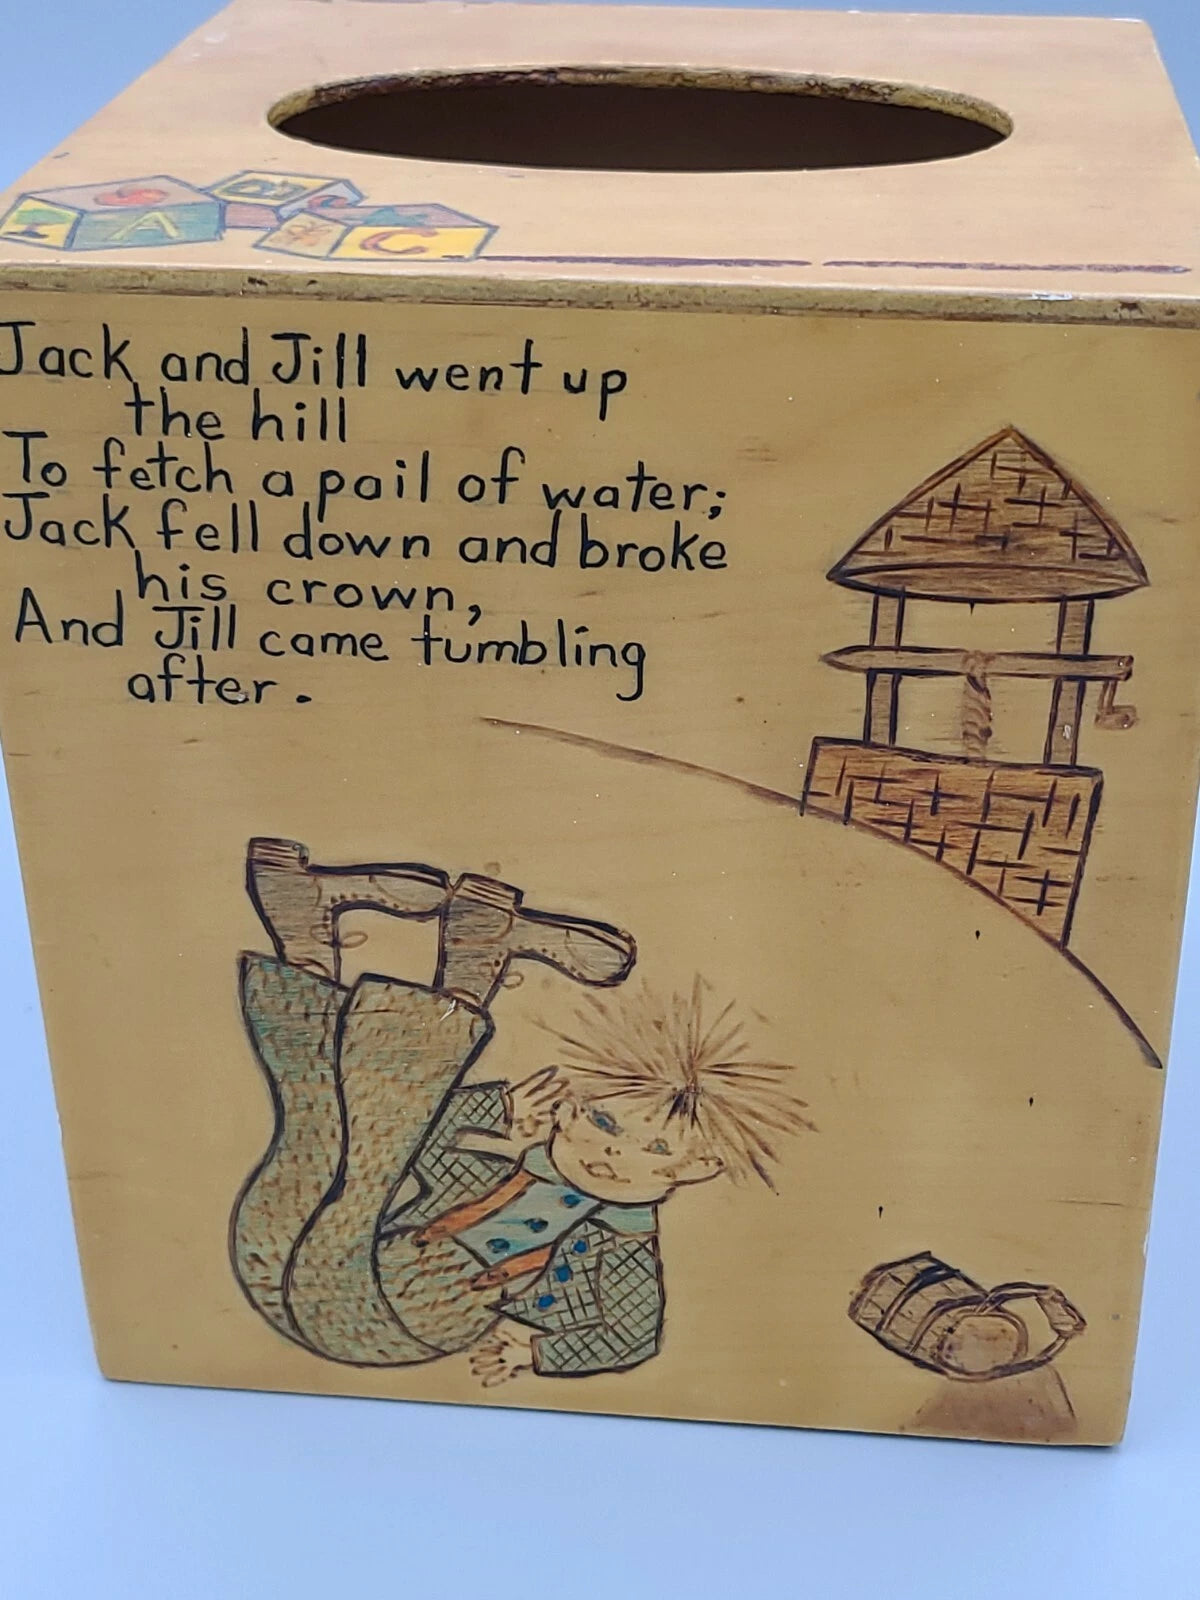 A
B
C
Jack and Jill went up
the hill
To fetch a pail of water;
Jack fell down and broke
his crown,
And Jill came tumbling
after.